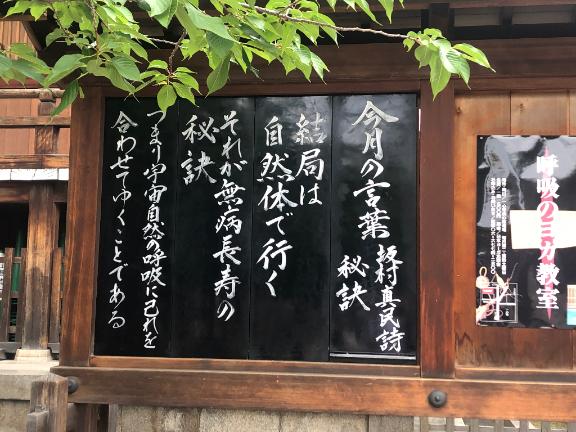 今月の言葉
坂村真民詩
秘訣
結局は
自然体で行く
それが無病長寿の
秘訣
つまり宇宙自然の呼吸に己れを
合わせてゆくことである
呼吸の三方教室